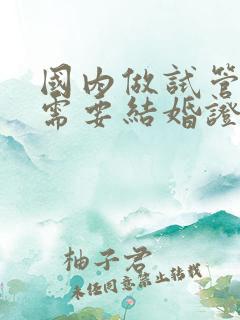 國內做試管
需要結婚證
柚子君
未經同意禁止轉載